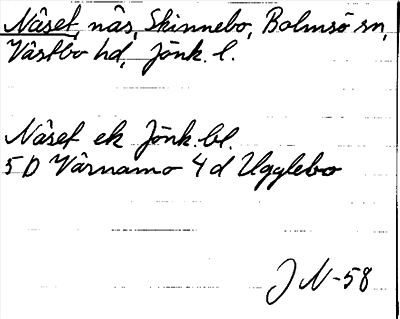 Näset, näs, Skinnebo, Bolmsö sn,
Västbo hd, Jönk. l.
Näset ek Jönk. bl.
5 D Värnamo 4 d Ugglebo
J N-58